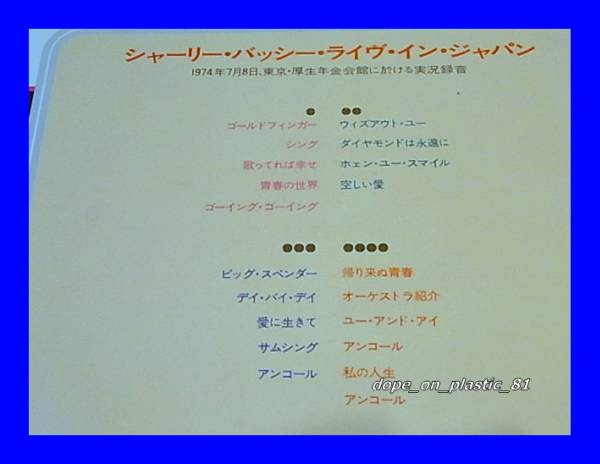 シャーリー・バッシー・ライヴ・イン・ジャパン
1974年7月8日、東京・厚生年金会館に於ける実況録音
ゴールドフィンガー
シング
歌ってれば幸せ
青春の世界
ゴーイング・ゴーイング
ウィズアウト・ユー
ダイヤモンドは永遠に
ホェン・ユー・スマイル
空しい愛
ビッグ・スペンダー
デイ・バイ・デイ
愛に生きて
サムシング
アンコール
帰り来ぬ青春
オーケストラ紹介
ユー・アンド・アイ
アンコール
私の人生
アンコール
dope_on_plastic_81